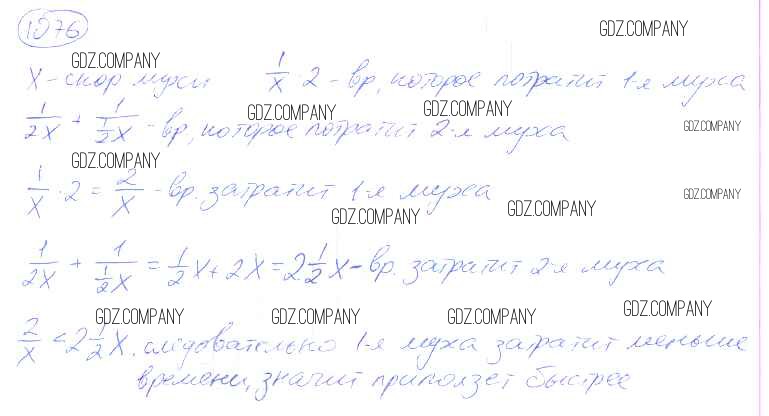 1076
GDZ.COMPANY
GDZ.COMPANY
x - скор мухи 1/x · 2 - вр, которое потратит 1-я муха
GDZ.COMPANY GDZ.COMPANY
1/2x + 1/(1/2 x) - вр, которое потратит 2-я муха
GDZ.COMPANY
GDZ.COMPANY
1/x · 2 = 2/x - вр. затратит 1-я муха
GDZ.COMPANY
GDZ.COMPANY GDZ.COMPANY
1/2x + 1/(1/2 x) = 1/2 x + 2x = 2 1/2 x - вр. затратит 2-я муха
GDZ.COMPANY GDZ.COMPANY GDZ.COMPANY GDZ.COMPANY
2/x < 2 1/2 x. следовательно 1-я муха затратит меньше
времени, значит приползет быстрее